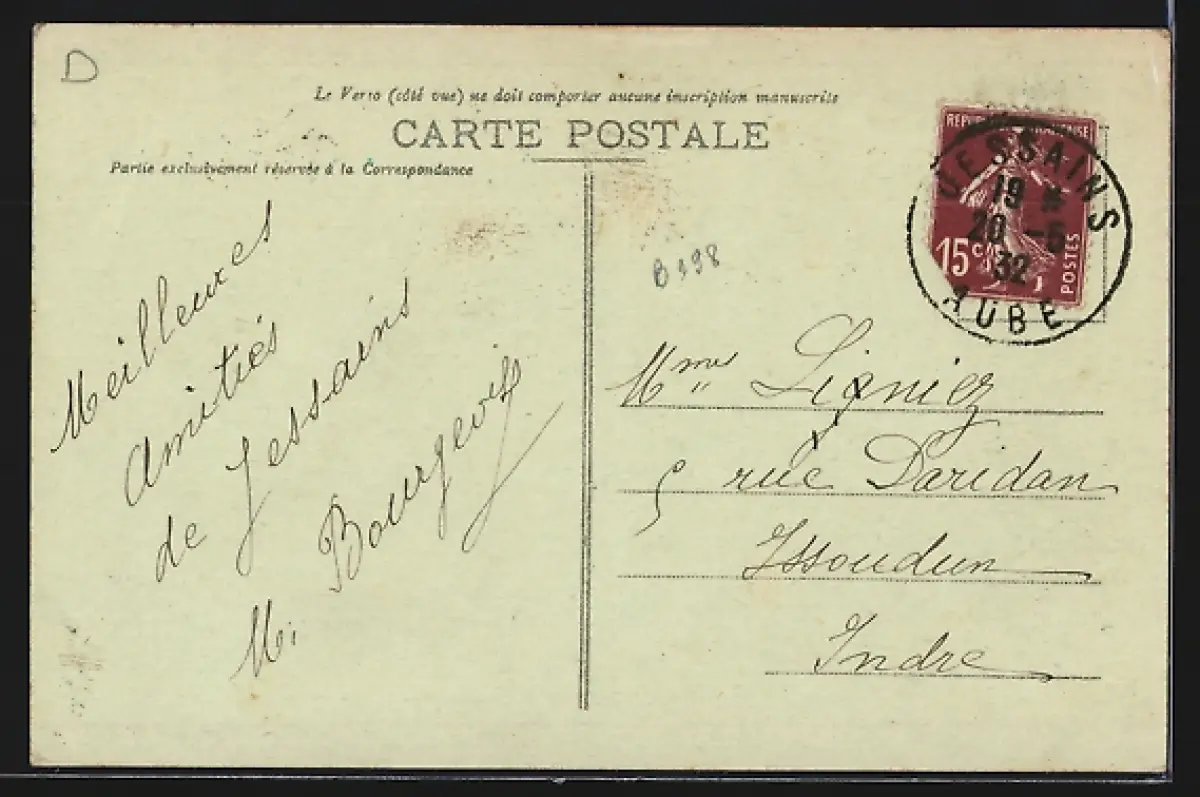 D
Le Verso (côté vue) ne doit comporter aucune inscription manuscrite
CARTE POSTALE
Partie exclusivement réservée à la Correspondance
REPUBLIQUE FRANÇAISE
15c
POSTES
JESSAINS
19 *
20 -5
32
AUBE
B398
Meilleures
Amitiés
de Jessains
M. Bourgeois
Mme Ligniez
5 rue Daridan
Issoudun
Indre